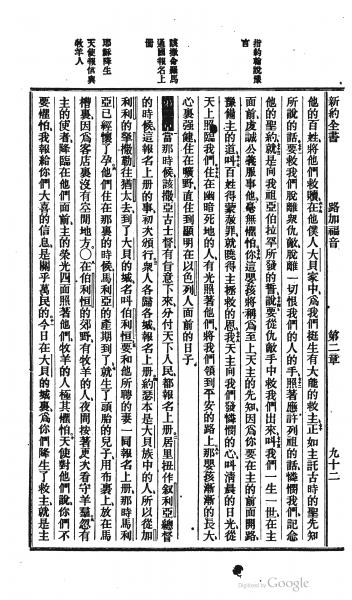 新約全書 路加福音 第二章 九十二
指約翰說豫言
他的百姓將他們救贖在他僕人大貝家中爲我們挺生有大能的救主正如主託古時的聖先知
所說的話要救我們脫離衆仇敵脫離一切恨我們的人的手照著應許列祖的話憐憫我們記念
他的聖約就是向我祖亞伯拉罕所發的誓說要從仇敵手中救我們出來叫我們一生一世在主
面前虔誠公義服事他毫無懼怕你這嬰孩將稱爲至上天主的先知因爲你要在主的前面開路
豫備主的道叫百姓得蒙赦罪就曉得主拯救的恩我天主向我們發憐憫的心叫清晨的日光從
天上照臨我們住在幽暗死地的人有光照著他們將我們領到平安的路上那嬰孩漸漸的長大
心裏强健住在曠野直住到顯明在以色列人面前的日子
該撒命羅馬通國報名上冊
當那時候該撒亞古士督有旨意下來分付天下人民都報名上册居里扭作叙利亞總督
的時候這報名上册的事初次頒行衆人各歸各城報名上册約瑟本是大貝族中的人所以從加
利利的拏撒勒往猶太去到了大貝的城名叫伯利恒要和他所聘的妻一同報名上册那時馬利
耶穌降生
亞已經懷了孕他們住在那裏的時候馬利亞的產期到了就生了頭胎的兒子用布裹上放在馬
天使報信與牧羊人
槽裏因爲客店裏沒有公閒地方○在伯利恒的郊野有牧羊的人夜間按著更次看守羊羣忽有
主的使者降臨在他們面前主的榮光四面照著他們牧羊的人極其懼怕天使對他們說你們不
要懼怕我報給你們大喜的信息是關乎萬民的今日在大貝的城裏爲你們降生了救主就是主
Digitized by Google